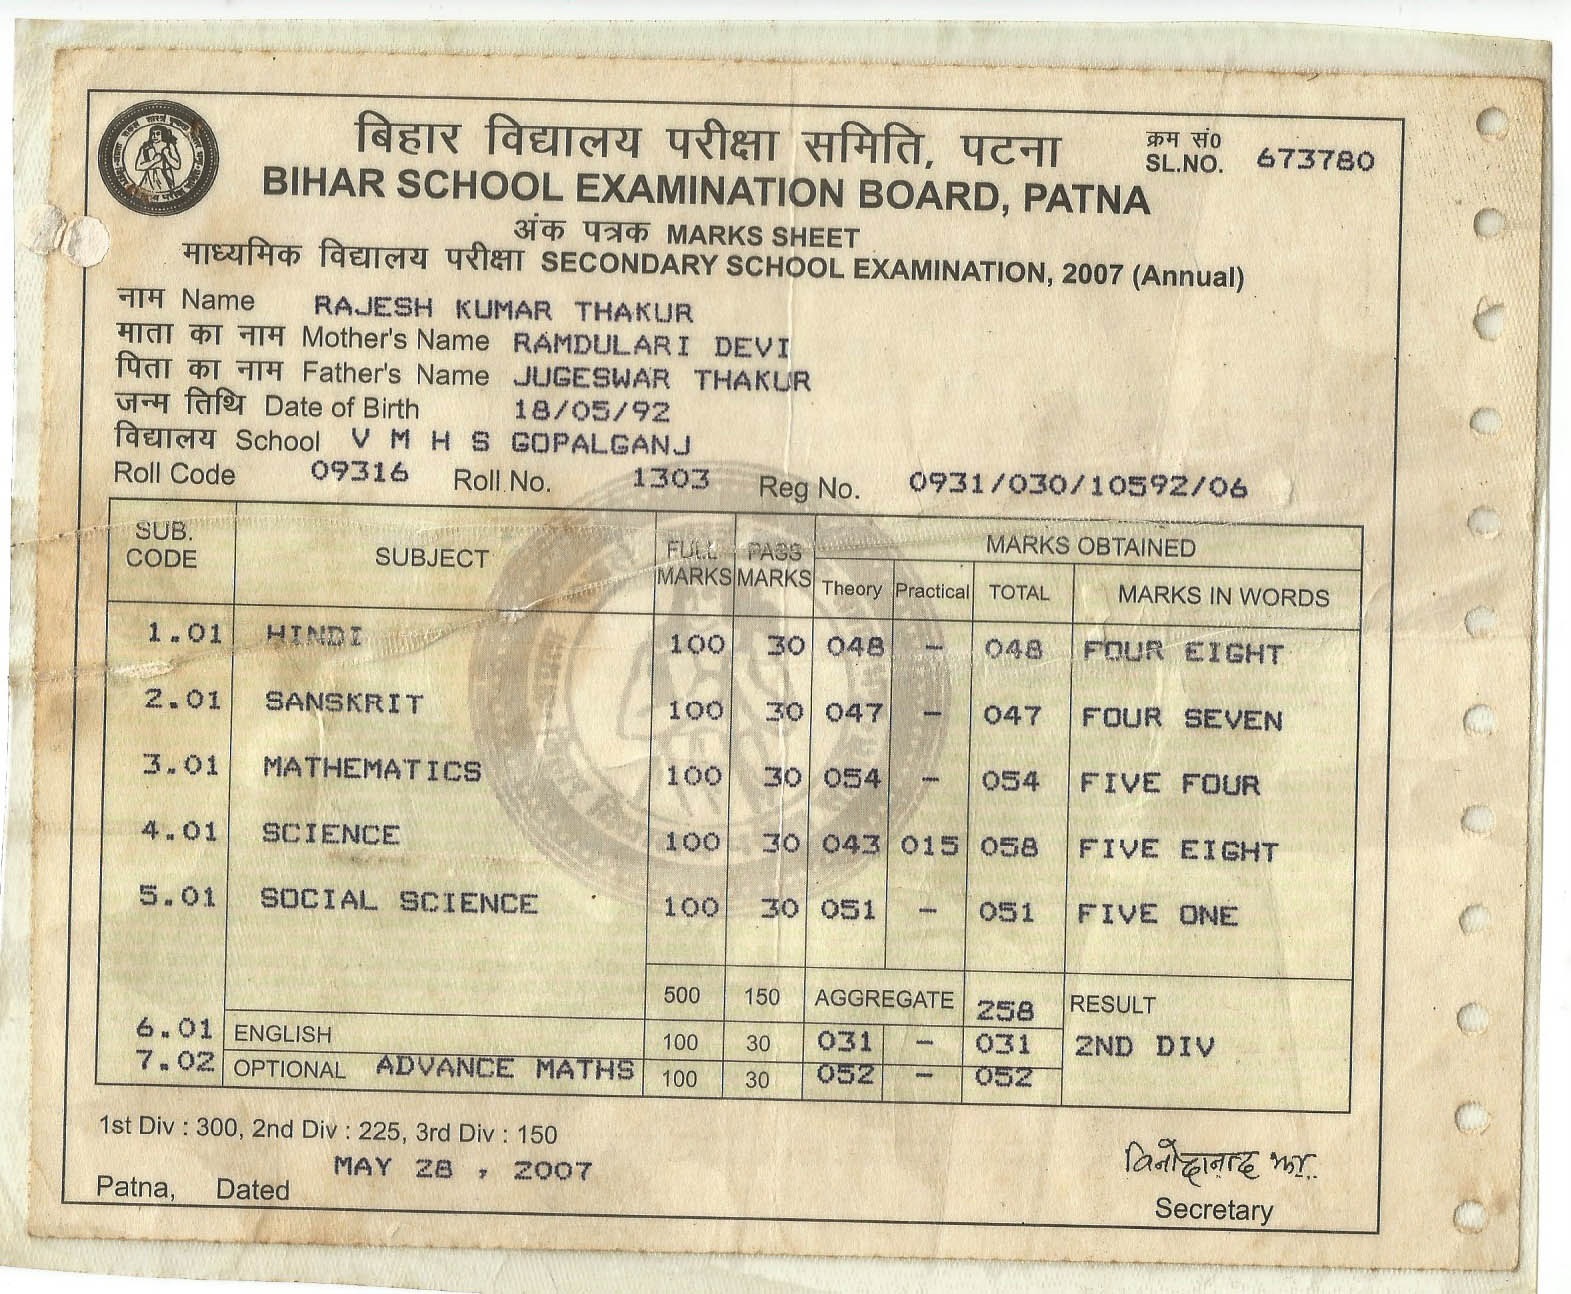 बिहार विद्यालय परीक्षा समिति, पटना
क्रम सं0
SL.NO. 673780
BIHAR SCHOOL EXAMINATION BOARD, PATNA
अंक पत्रक MARKS SHEET
माध्यमिक विद्यालय परीक्षा SECONDARY SCHOOL EXAMINATION, 2007 (Annual)
नाम Name RAJESH KUMAR THAKUR
माता का नाम Mother's Name RAMDULARI DEVI
पिता का नाम Father's Name JUGESWAR THAKUR
जन्म तिथि Date of Birth 18/05/92
विद्यालय School V M H S GOPALGANJ
Roll Code 09316 Roll No. 1303 Reg No. 0931/030/10592/06
SUB. CODE SUBJECT FULL MARKS PASS MARKS MARKS OBTAINED
Theory Practical TOTAL MARKS IN WORDS
1.01 HINDI 100 30 048 - 048 FOUR EIGHT
2.01 SANSKRIT 100 30 047 - 047 FOUR SEVEN
3.01 MATHEMATICS 100 30 054 - 054 FIVE FOUR
4.01 SCIENCE 100 30 043 015 058 FIVE EIGHT
5.01 SOCIAL SCIENCE 100 30 051 - 051 FIVE ONE
500 150 AGGREGATE 258 RESULT
6.01 ENGLISH 100 30 031 - 031 2ND DIV
7.02 OPTIONAL ADVANCE MATHS 100 30 052 - 052
1st Div : 300, 2nd Div : 225, 3rd Div : 150
MAY 28 , 2007
Patna, Dated
विनोदानन्द झा
Secretary